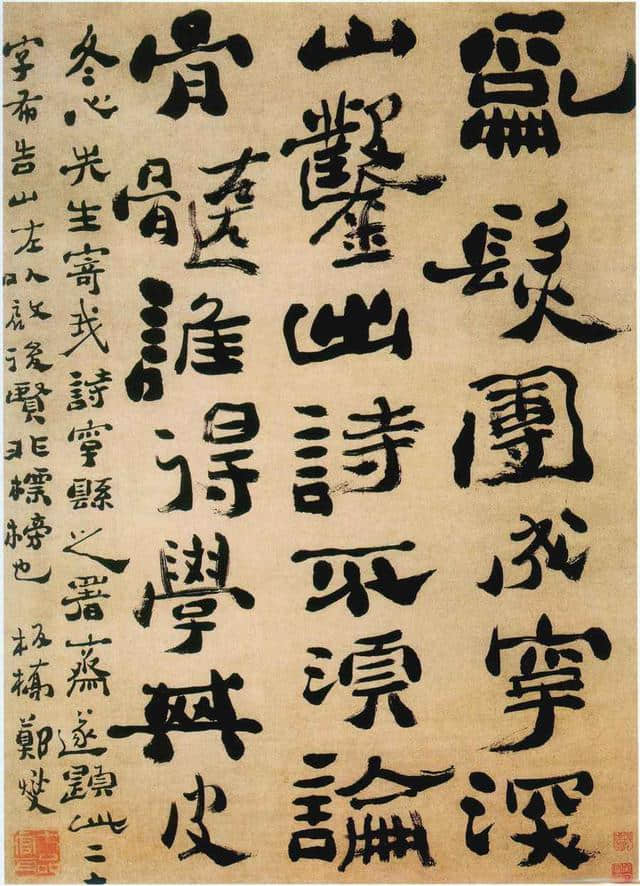 亂髮團成字深
山鑿出詩不須論
骨髓誰得學其皮
冬心先生寄我詩字縣之署齋遂題此二十
字布告山左以後賢非標榜也 板橋鄭燮